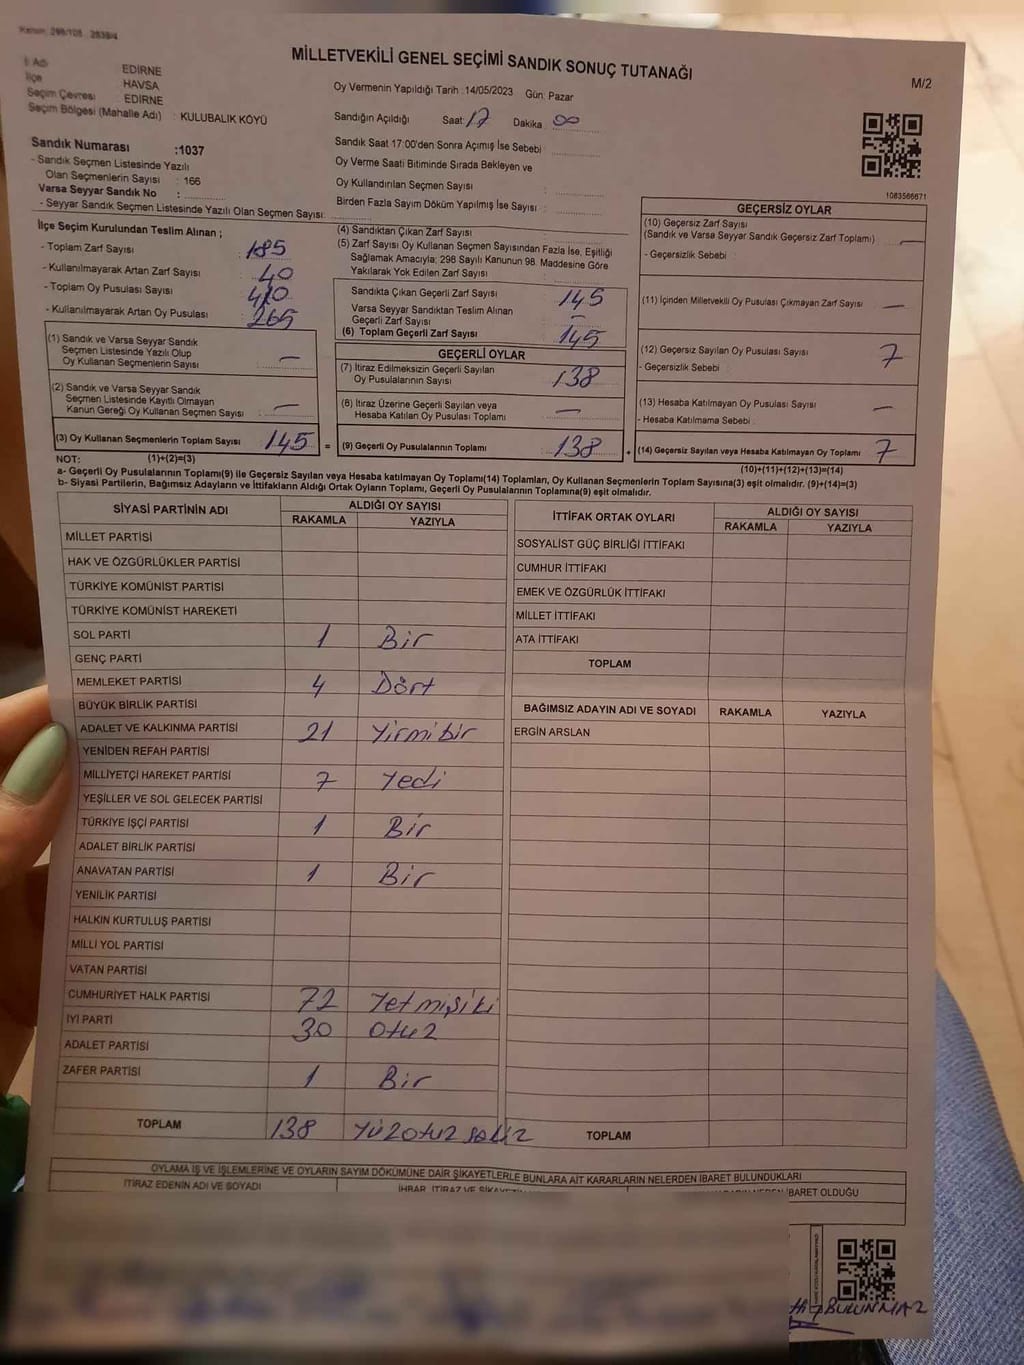 Kanun: 298/105 2839/4
MİLLETVEKİLİ GENEL SEÇİMİ SANDIK SONUÇ TUTANAĞI
M/2
İl Adı EDİRNE
İlçe HAVSA
Seçim Çevresi EDİRNE
Seçim Bölgesi (Mahalle Adı) : KULUBALIK KÖYÜ
Oy Vermenin Yapıldığı Tarih :14/05/2023 Gün: Pazar
Sandığın Açıldığı Saat: 17 Dakika : 00
Sandık Numarası :1037
- Sandık Seçmen Listesinde Yazılı
Olan Seçmenlerin Sayısı : 166
Varsa Seyyar Sandık No :
- Seyyar Sandık Seçmen Listesinde Yazılı Olan Seçmen Sayısı:
Sandık Saat 17:00'den Sonra Açımış İse Sebebi :
Oy Verme Saati Bitiminde Sırada Bekleyen ve
Oy Kullandırılan Seçmen Sayısı :
Birden Fazla Sayım Döküm Yapılmış İse Sayısı :
1083566671
İlçe Seçim Kurulundan Teslim Alınan ;
- Toplam Zarf Sayısı : 185
- Kullanılmayarak Artan Zarf Sayısı : 40
- Toplam Oy Pusulası Sayısı : 410
- Kullanılmayarak Artan Oy Pusulası : 265
(1) Sandık ve Varsa Seyyar Sandık
Seçmen Listesinde Yazılı Olup
Oy Kullanan Seçmenlerin Sayısı : —
(2) Sandık ve Varsa Seyyar Sandık
Seçmen Listesinde Kayıtlı Olmayan
Kanun Gereği Oy Kullanan Seçmen Sayısı : —
(3) Oy Kullanan Seçmenlerin Toplam Sayısı 145 =
(4) Sandıktan Çıkan Zarf Sayısı :
(5) Zarf Sayısı Oy Kullanan Seçmen Sayısından Fazla İse, Eşitliği
Sağlamak Amacıyla; 298 Sayılı Kanunun 98. Maddesine Göre
Yakılarak Yok Edilen Zarf Sayısı :
Sandıkta Çıkan Geçerli Zarf Sayısı : 145
Varsa Seyyar Sandıktan Teslim Alınan
Geçerli Zarf Sayısı : —
(6) Toplam Geçerli Zarf Sayısı : 145
GEÇERLİ OYLAR
(7) İtiraz Edilmeksizin Geçerli Sayılan
Oy Pusulalarının Sayısı : 138
(8) İtiraz Üzerine Geçerli Sayılan veya
Hesaba Katılan Oy Pusulası Toplamı : —
(9) Geçerli Oy Pusulalarının Toplamı 138
GEÇERSİZ OYLAR
(10) Geçersiz Zarf Sayısı
(Sandık ve Varsa Seyyar Sandık Geçersiz Zarf Toplamı) : —
- Geçersizlik Sebebi :
(11) İçinden Milletvekili Oy Pusulası Çıkmayan Zarf Sayısı : —
(12) Geçersiz Sayılan Oy Pusulası Sayısı : 7
- Geçersizlik Sebebi :
(13) Hesaba Katılmayan Oy Pusulası Sayısı : —
- Hesaba Katılmama Sebebi :
(14) Geçersiz Sayılan veya Hesaba Katılmayan Oy Toplamı 7
NOT: (1)+(2)=(3)
(10)+(11)+(12)+(13)=(14)
a- Geçerli Oy Pusulalarının Toplamı(9) ile Geçersiz Sayılan veya Hesaba katılmayan Oy Toplamı(14) Toplamları, Oy Kullanan Seçmenlerin Toplam Sayısına(3) eşit olmalıdır. (9)+(14)=(3)
b- Siyasi Partilerin, Bağımsız Adayların ve İttifakların Aldığı Ortak Oyların Toplamı, Geçerli Oy Pusulalarının Toplamına(9) eşit olmalıdır.
SİYASİ PARTİNİN ADI ALDIĞI OY SAYISI
RAKAMLA YAZIYLA
MİLLET PARTİSİ
HAK VE ÖZGÜRLÜKLER PARTİSİ
TÜRKİYE KOMÜNİST PARTİSİ
TÜRKİYE KOMÜNİST HAREKETİ
SOL PARTİ 1 Bir
GENÇ PARTİ
MEMLEKET PARTİSİ 4 Dört
BÜYÜK BİRLİK PARTİSİ
ADALET VE KALKINMA PARTİSİ 21 Yirmibir
YENİDEN REFAH PARTİSİ
MİLLİYETÇİ HAREKET PARTİSİ 7 Yedi
YEŞİLLER VE SOL GELECEK PARTİSİ
TÜRKİYE İŞÇİ PARTİSİ 1 Bir
ADALET BİRLİK PARTİSİ
ANAVATAN PARTİSİ 1 Bir
YENİLİK PARTİSİ
HALKIN KURTULUŞ PARTİSİ
MİLLİ YOL PARTİSİ
VATAN PARTİSİ
CUMHURİYET HALK PARTİSİ 72 Yetmişiki
İYİ PARTİ 30 Otuz
ADALET PARTİSİ
ZAFER PARTİSİ 1 Bir
TOPLAM 138 Yüzotuz sekiz
İTTİFAK ORTAK OYLARI ALDIĞI OY SAYISI
RAKAMLA YAZIYLA
SOSYALİST GÜÇ BİRLİĞİ İTTİFAKI
CUMHUR İTTİFAKI
EMEK VE ÖZGÜRLÜK İTTİFAKI
MİLLET İTTİFAKI
ATA İTTİFAKI
TOPLAM
BAĞIMSIZ ADAYIN ADI VE SOYADI RAKAMLA YAZIYLA
ERGİN ARSLAN
TOPLAM
OYLAMA İŞ VE İŞLEMLERİNE VE OYLARIN SAYIM DÖKÜMÜNE DAİR ŞİKAYETLERLE BUNLARA AİT KARARLARIN NELERDEN İBARET BULUNDUKLARI
İTİRAZ EDENİN ADI VE SOYADI
İBARET OLDUĞU
BULUNMAZ